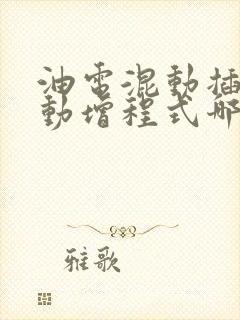 油電混動插
動增程式哪
雅歌